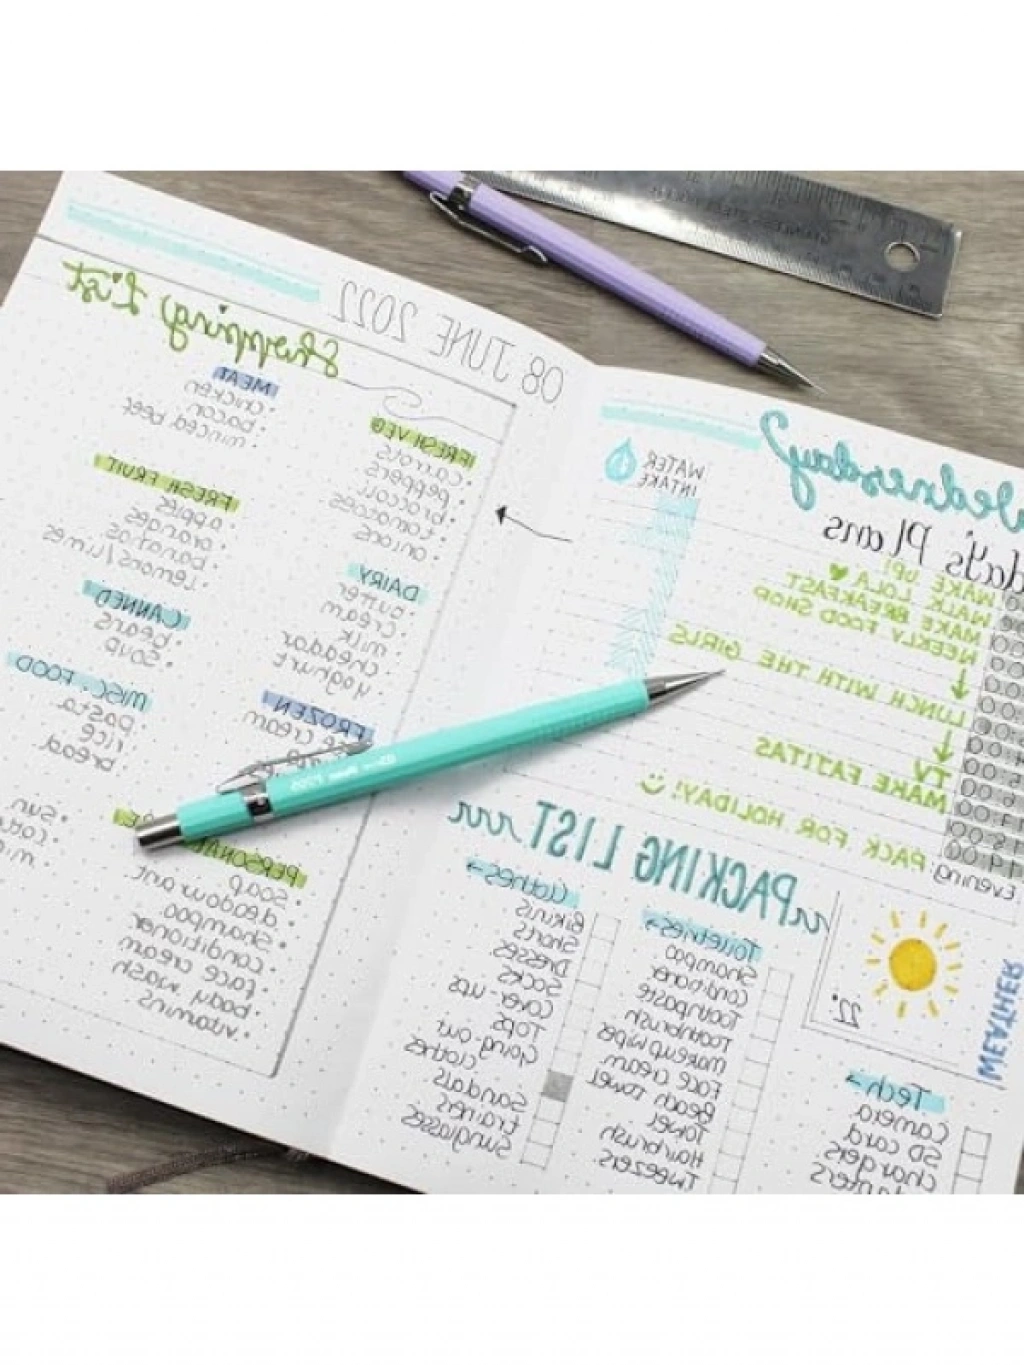 Wednesday
day's Plans
WAKE UP!
WALK LOLA ♥
MAKE BREAKFAST
WEEKLY FOOD SHOP
↓
LUNCH WITH THE GIRLS
↓
TV
MAKE FAJITAS
PACK FOR HOLIDAY! :)
Evening
WATER
INTAKE
WEATHER
22°
PACKING LIST
Tech→
Camera
SD card
chargers
Toiletries→
Shampoo
Conditioner
Toothpaste
Toothbrush
Makeup wipes
Face cream
Beach towel
Towel
Hairbrush
Tweezers
Clothes→
Bikinis
Shorts
Dresses
Socks
Cover-ups
Tops
Going out
clothes
Sandals
trainers
Sunglasses
08 JUNE 2022
Shopping List
FRESH VEG
• carrots
• peppers
• broccoli
• tomatoes
• onions
DAIRY
• butter
• cream
• milk
• cheddar
• yoghurt
FROZEN
cream
PERSONAL
• soap
• deodourant
• shampoo
• conditioner
• face cream
• body wash
• vitamins
MEAT
• chicken
• bacon
• minced beef
FRESH FRUIT
• apples
• oranges
• bananas
• Lemons/limes
CANNED
• beans
• soup
MISC. FOOD
• pasta
• rice
• bread
• sun